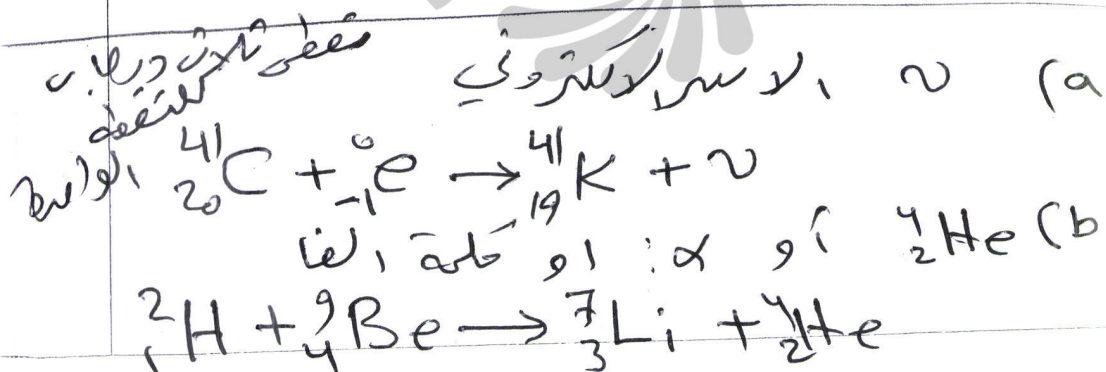 تعطى ثلاث درجات
للنقطة
الواحدة
a) ν الاسر الالكتروني
⁴¹₂₀C + ⁰₋₁e → ⁴¹₁₉K + ν
b) ⁴₂He أو α: او كلمة الفا
²₁H + ⁹₄Be → ⁷₃Li + ⁴₂He